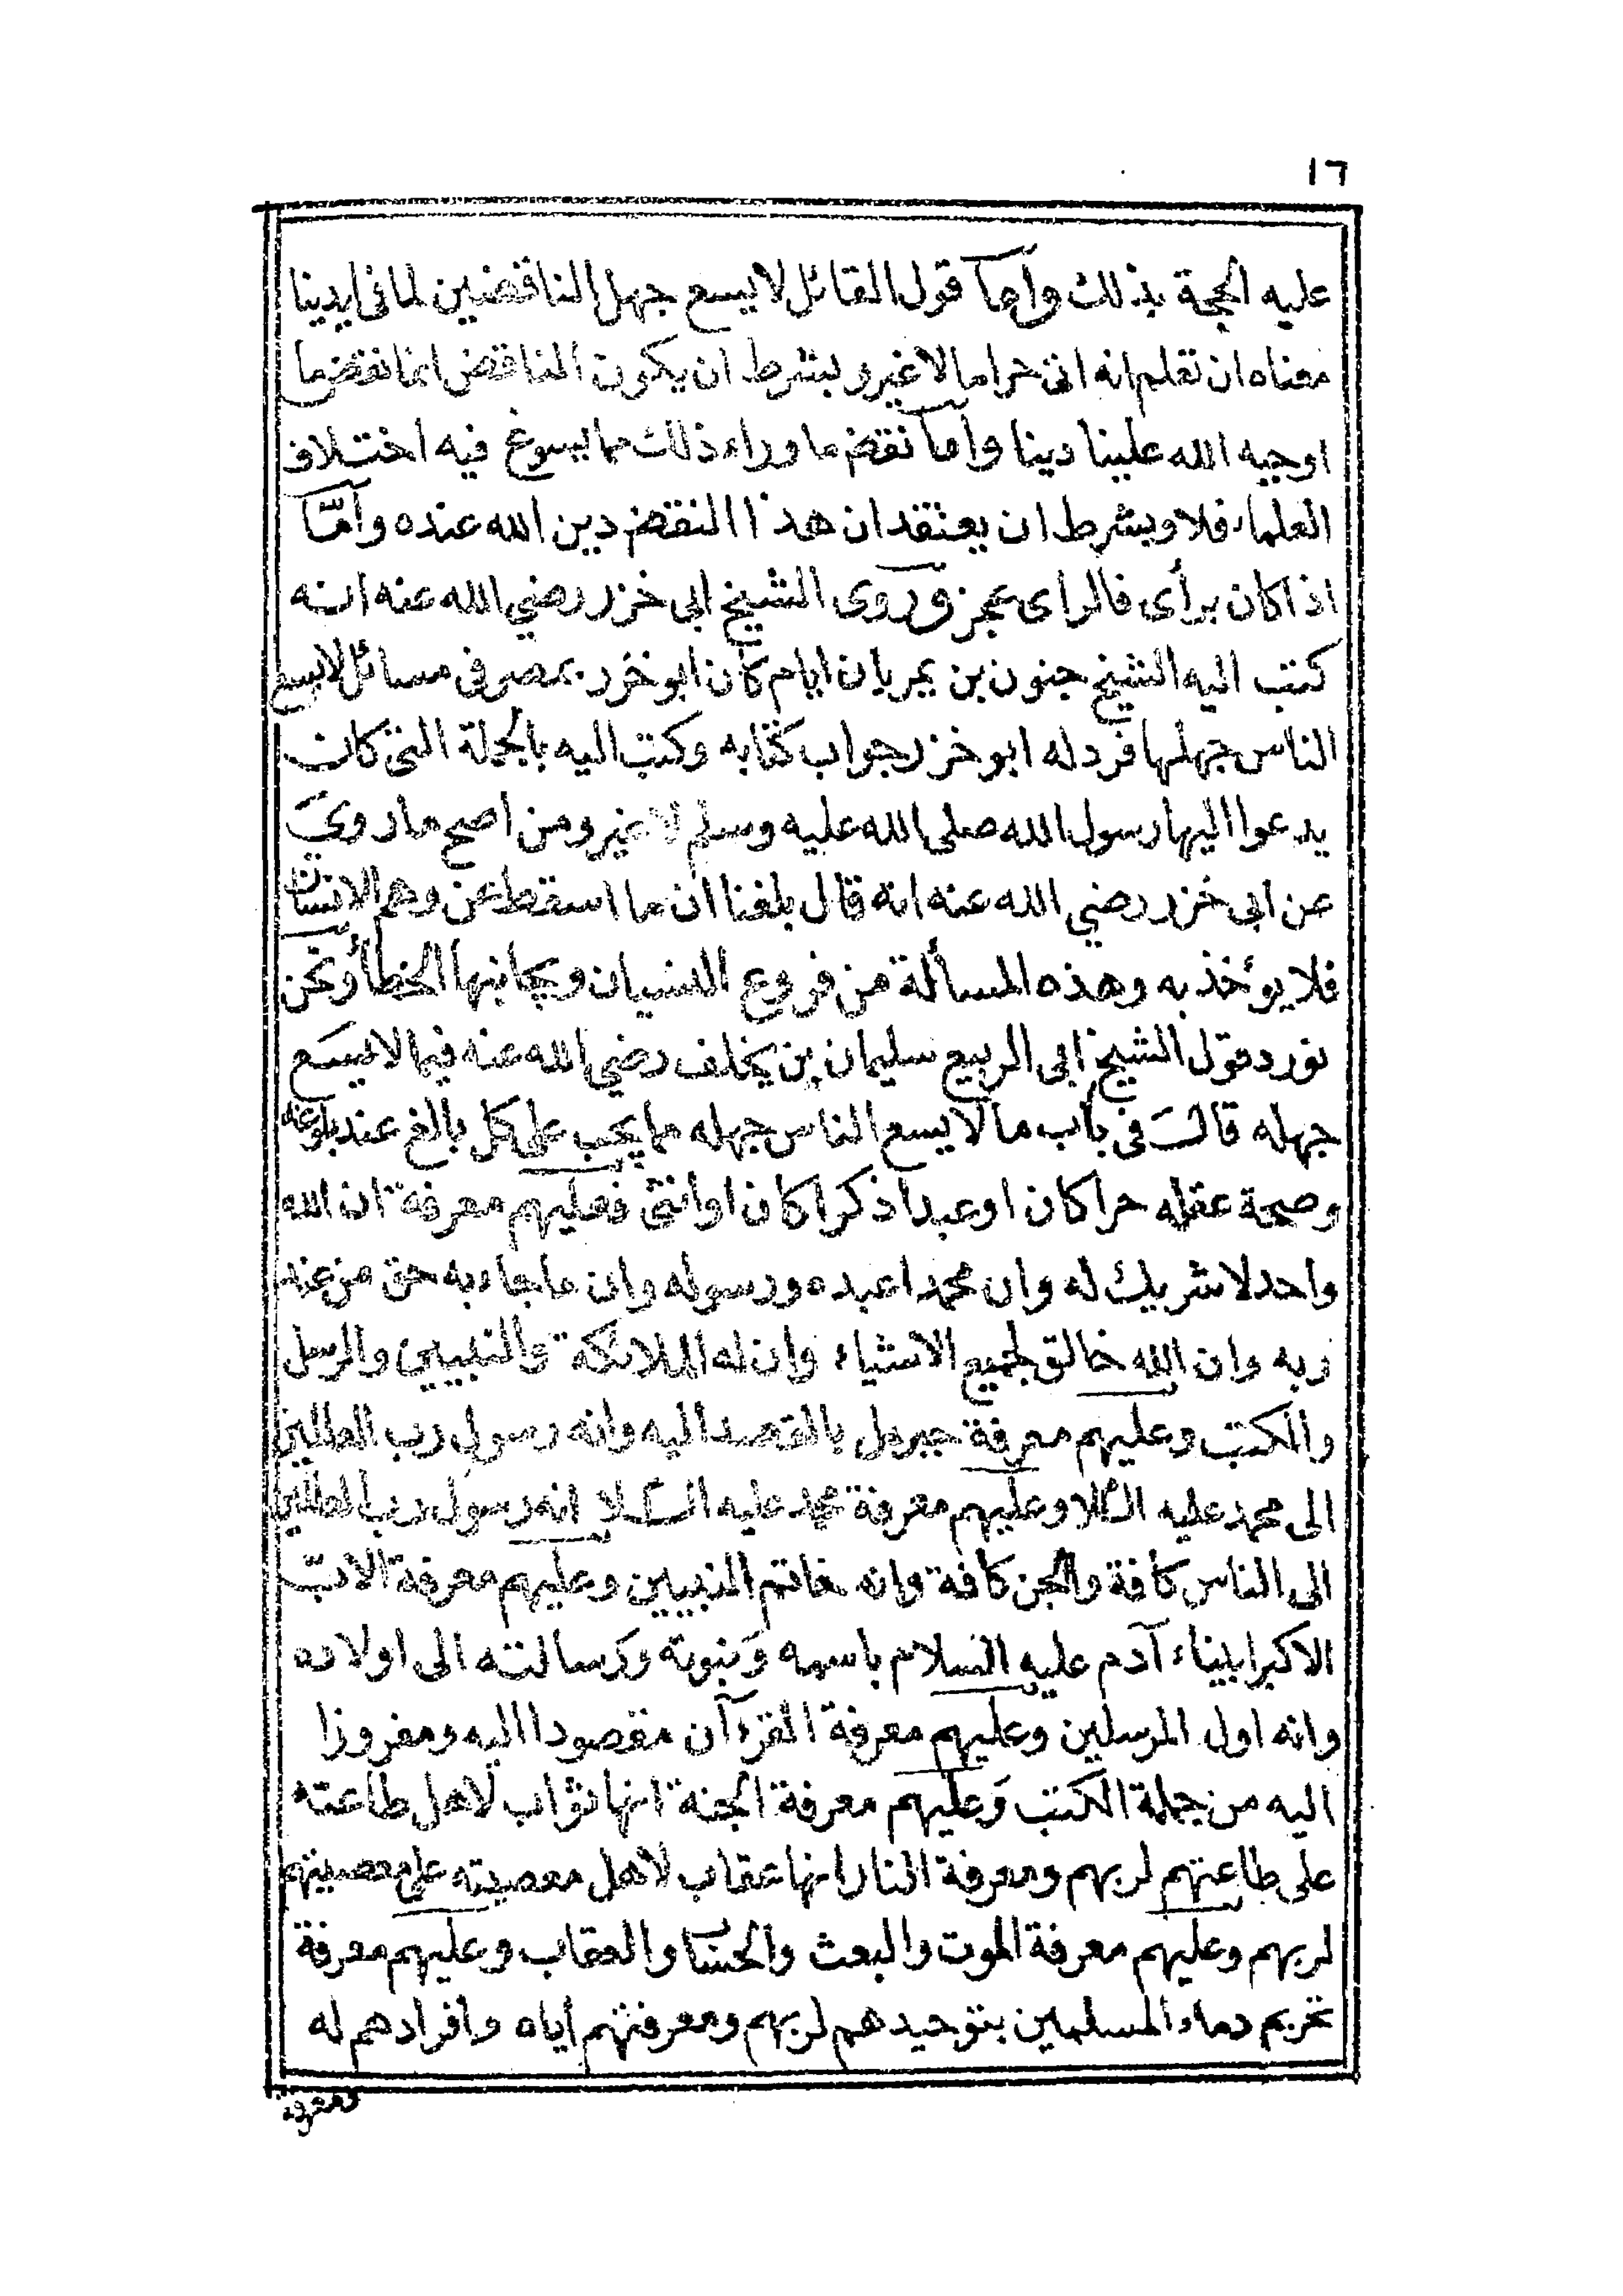 ١٦
عليه الحجة بذلك وأما قول القائل لا يسع جهل الناقضين لما في ايدينا
معناه ان تعلم انه اتى حراما لا غير وبشرط ان يكون المناقض انما نقض ما
اوجبه الله علينا دينا وأما نقض ما وراء ذلك مما يسوغ فيه اختلاف
العلماء فلا وبشرط ان يعتقد ان هذا النقض دين الله عنده وأمّا
اذا كان برأى فالراى عجز وروى الشيخ ابى خزر رضي الله عنه انه
كتب اليه الشيخ جنون بن يمريان ايام كان ابو خزر بمصر في مسائل لا يسع
الناس جهلها فرد له ابو خزر جواب كتابه وكتب اليه بالجملة التي كان
يدعوا اليها رسول الله صلى الله عليه وسلم لا غير ومن اصح ما روي
عن ابى خزر رضي الله عنه انه قال بلغنا ان ما اسقط عن وهم الانسان
فلا يؤخذ به وهذه المسألة من فروع النسيان ويجانبها الخطأ ونحن
نورد قول الشيخ ابى الربيع سليمان بن يخلف رضي الله عنه فيما لا يسع
جهله قال في باب ما لا يسع الناس جهله مما يجب على كل بالغ عند بلوغه
وصحة عقله حرا كان او عبدا ذكرا كان او انثى فعليهم معرفة ان الله
واحد لا شريك له وان محمدا عبده ورسوله وان ما جاء به حق من عند
ربه وان الله خالق لجميع الاشياء وان له الملائكة والنبيين والرسل
والكتب وعليهم معرفة جبريل بالقصد اليه وانه رسول رب العالمين
الى محمد عليه السلام وعليهم معرفة محمد عليه السلام انه رسول رب العالمين
الى الناس كافة والجن كافة وانه خاتم النبيين وعليهم معرفة الاب
الاكبر ابيناء آدم عليه السلام باسمه ونبوته ورسالته الى اولاده
وانه اول المرسلين وعليهم معرفة القرءآن مقصودا اليه ومفروزا
اليه من جملة الكتب وعليهم معرفة الجنة انها ثواب لاهل طاعته
على طاعتهم لربهم ومعرفة النار انها عقاب لاهل معصيته على معصيتهم
لربهم وعليهم معرفة الموت والبعث والحساب والعقاب وعليهم معرفة
تحريم دماء المسلمين بتوحيدهم لربهم ومعرفتهم اياه وافرادهم له